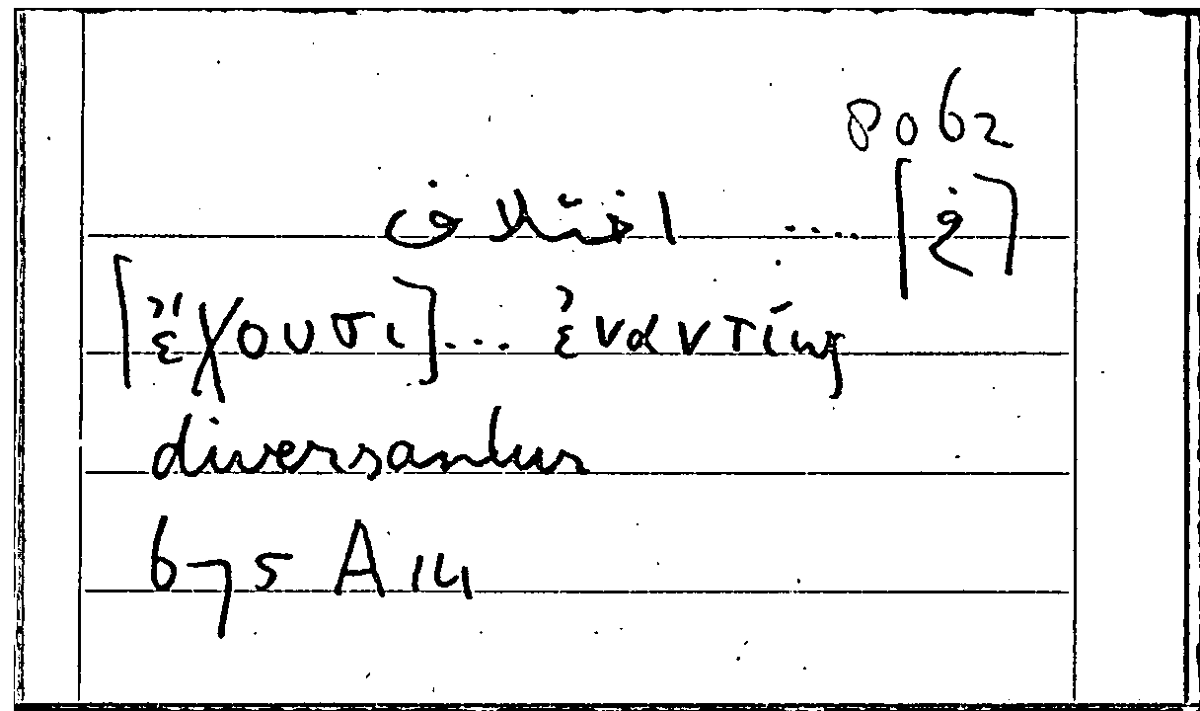 8062
[في] ..... اختلاف
[ἔχουσι]... ἐναντίως
diversantur
675 A 14